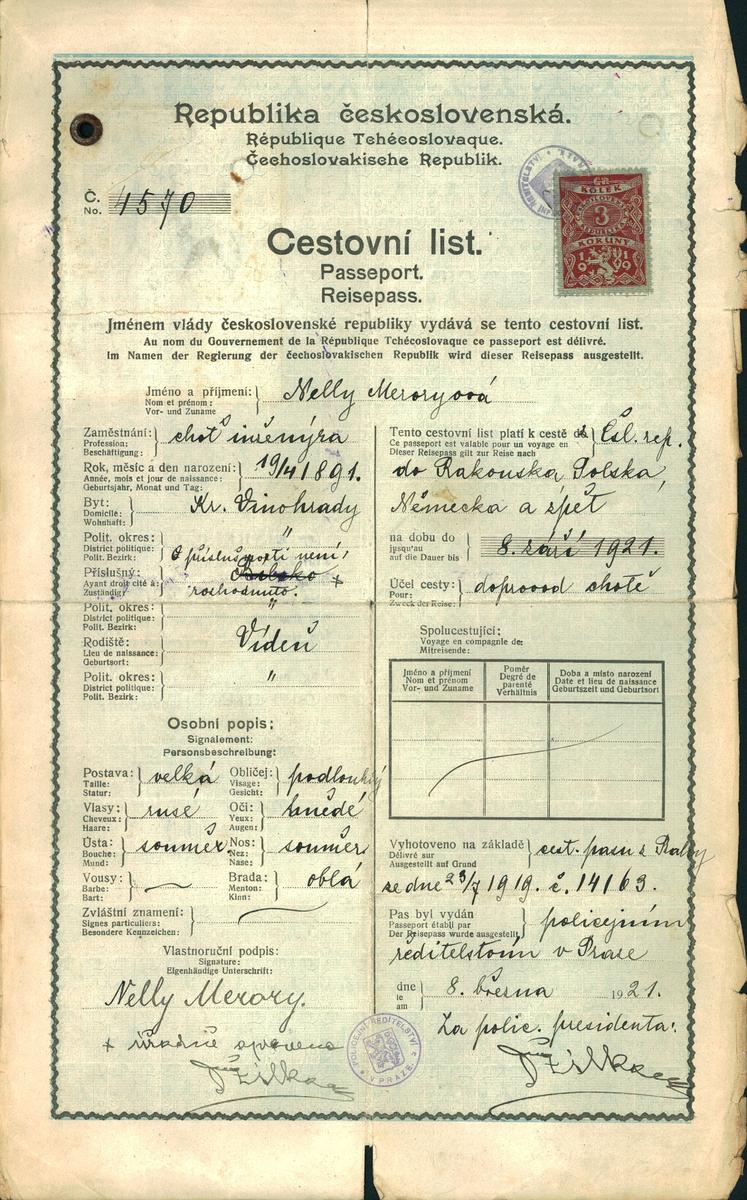 Republika československá.
République Tchécoslovaque.
Čechoslovakische Republik.
Č.
No. 4570
KOLEK
3
KORUNY
1919
Cestovní list.
Passeport.
Reisepass.
Jménem vlády československé republiky vydává se tento cestovní list.
Au nom du Gouvernement de la République Tchécoslovaque ce passeport est délivré.
Im Namen der Regierung der čechoslovakischen Republik wird dieser Reisepass ausgestellt.
Jméno a příjmení: Nelly Meroryová
Nom et prénom:
Vor- und Zuname
Zaměstnání: choť inženýra
Profession:
Beschäftigung:
Rok, měsíc a den narození: 19/4 1891.
Année, mois et jour de naissance:
Geburtsjahr, Monat und Tag:
Byt: Kr. Vinohrady
Domicile:
Wohnhaft:
Polit. okres: "
District politique:
Polit. Bezirk:
O příslušnosti není,
Příslušný: Bílsko +
Ayant droit cité à: rozhodnuto.
Zuständig:
Polit. okres: "
District politique:
Polit. Bezirk:
Rodiště: Vídeň
Lieu de naissance:
Geburtsort:
Polit. okres: "
District politique:
Polit. Bezirk:
Osobní popis:
Signalement:
Personsbeschreibung:
Postava: velká Obličej: podlouhlý
Taille: Visage:
Statur: Gesicht:
Vlasy: rusé Oči: hnědé
Cheveux: Yeux:
Haare: Augen:
Ústa: souměr. Nos: souměr
Bouche: Nez:
Mund: Nase:
Vousy: Brada: oblá
Barbe: Menton:
Bart: Kinn:
Zvláštní znamení:
Signes particuliers:
Besondere Kennzeichen:
Vlastnoruční podpis:
Signature:
Eigenhändige Unterschrift:
Nelly Merory.
+ úředně opraveno
Tento cestovní list platí k cestě do Čsl. rep.
Ce passeport est valable pour un voyage en
Dieser Reisepass gilt zur Reise nach
do Rakouska, Polska,
Německa a zpět
na dobu do 8. září 1921.
jusqu'au
auf die Dauer bis
Účel cesty: doprovod chotě
Pour:
Zweck der Reise:
Spolucestující:
Voyage en compagnie de:
Mitreisende:
Jméno a příjmení Poměr Doba a místo narození
Nom et prénom Degré de parenté Date et lieu de naissance
Vor- und Zuname Verhältnis Geburtszeit und Geburtsort
Vyhotoveno na základě cest. pasu z Prahy
Délivré sur
Ausgestellt auf Grund
ze dne 23/7 1919. č. 14163.
Pas byl vydán policejním
Passeport établi par
Der Reisepass wurde ausgestellt
ředitelstvím v Praze
dne 8. března 1921.
le
am
Za polic. presidenta:
POLICEJNÍ ŘEDITELSTVÍ V PRAZE